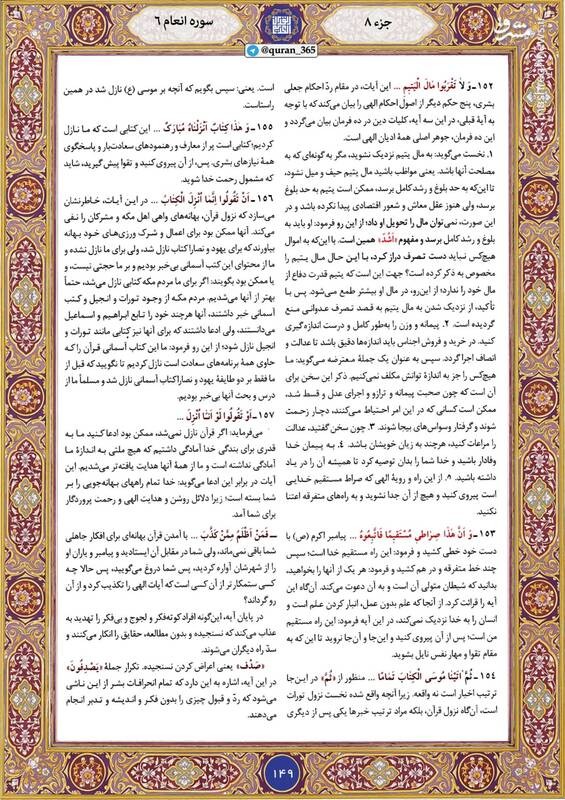 جزء ۸
سوره انعام ۶
@quran_365
۱۵۲ـ وَ لاٰ تَقْرَبُوا مٰالَ الْیَتیمِ ... این آیات، در مقام ردّ احکام جعلی
بشری، پنج حکم دیگر از اصول احکام الهی را بیان می‌کند که با توجه
به آیهٔ قبلی، در این سه آیه، کلیات دین در ده فرمان بیان می‌گردد و
این ده فرمان، جوهر اصلی همهٔ ادیان الهی است.
۱. نخست می‌گوید: به مال یتیم نزدیک نشوید، مگر به گونه‌ای که به
مصلحت آنها باشد. یعنی مواظب باشید مال یتیم حیف و میل نشود،
تا این‌که به حد بلوغ و رشد کامل برسد، ممکن است یتیم به حد بلوغ
برسد، ولی هنوز عقل معاش و شعور اقتصادی پیدا نکرده باشد و در
این صورت، نمی‌توان مال را تحویل او داد؛ از این رو فرمود: او باید به
بلوغ و رشد کامل برسد و مفهوم «اَشُدّ» همین است. با این‌که به اموال
هیچ‌کس نباید دست تصرف دراز کرد، با این حال مال یتیم را
مخصوص به ذکر کرده است؟ جهت این است که یتیم قدرت دفاع از
مال خود را ندارد؛ از این‌رو، در مال او بیشتر طمع می‌شود. پس با
تأکید، از نزدیک شدن به مال یتیم به قصد تصرف عدوانی منع
گردیده است. ۲. پیمانه و وزن را به‌طور کامل و درست اندازه‌گیری
کنید. در خرید و فروش اجناس باید اندازه‌ها دقیق باشد تا عدالت و
انصاف اجرا گردد. سپس به عنوان یک جملهٔ معترضه می‌گوید: ما
هیچ‌کس را جز به اندازهٔ توانش مکلف نمی‌کنیم. ذکر این سخن برای
آن است که چون صحبت پیمانه و ترازو و اجرای عدل و قسط شد،
ممکن است کسانی که در این امر احتیاط می‌کنند، دچار زحمت
شوند و گرفتار وسواس‌های بیجا شوند. ۳. چون سخن گفتید، عدالت
را مراعات کنید، هرچند به زیان خویشان باشد. ۴. به پیمان خدا
وفادار باشید و خدا شما را بدان توصیه کرد تا همیشه آن را در یاد
داشته باشید. ۵. از این راه و رویهٔ الهی که صراط مستقیم خدایی
است پیروی کنید و هیچ از آن جدا نشوید و به راه‌های متفرقه اعتنا
نکنید.
۱۵۳ـ وَ اَنَّ هٰذٰا صِرٰاطی مُسْتَقیمًا فَاتَّبِعُوهُ ... پیامبر اکرم (ص) با
دست خود خطی کشید و فرمود: این راه مستقیم خدا است؛ سپس
چند خط متفرقه و در هم کشید و فرمود: هر یک از آنها را بخواهید،
بدانید که شیطان متولی آن است و به آن دعوت می‌کند. آن‌گاه این
آیه را قرائت کرد. از آنجا که علم بدون عمل، انبار کردن علم است و
انسان را به خدا نزدیک نمی‌کند، در این آیه فرمود: این راه مستقیم
من است؛ پس از آن پیروی کنید و این‌جا و آن‌جا نروید تا این که به
مقام تقوا و مهار نفس نایل بشوید.
۱۵۴ـ ثُمَّ اٰتَیْنٰا مُوسَی الْکِتٰابَ تَمٰامًا ... منظور از «ثُمَّ» در این‌جا
ترتیب اخبار است نه واقعه. زیرا آنچه واقع شده نخست نزول تورات
است، آن‌گاه نزول قرآن، بلکه مراد ترتیب خبرها یکی پس از دیگری
است. یعنی: سپس بگویم که آنچه بر موسی (ع) نازل شد در همین
راستاست.
۱۵۵ـ وَ هٰذٰا کِتٰابٌ اَنْزَلْنٰاهُ مُبٰارَکٌ ... این کتابی است که ما نازل
کردیم؛ کتابی است پر از معارف و رهنمودهای سعادت‌بار و پاسخگوی
همهٔ نیازهای بشری. پس، از آن پیروی کنید و تقوا پیش گیرید، شاید
که مشمول رحمت خدا شوید.
۱۵۶ـ اَنْ تَقُولُوا اِنَّمٰا اُنْزِلَ الْکِتٰابُ ... در این آیات، خاطرنشان
می‌سازد که نزول قرآن، بهانه‌های واهی اهل مکه و مشرکان را نفی
می‌کند. آنها ممکن بود برای اعمال و شرک ورزی‌های خود بهانه
بیاورند که برای یهود و نصارا کتاب نازل شد، ولی برای ما نازل نشده و
ما از محتوای این کتب آسمانی بی‌خبر بودیم و بر ما حجتی نیست، و
یا ممکن بود بگویند: اگر برای ما مردم مکه کتابی نازل می‌شد، حتماً
بهتر از آنها می‌شدیم. مردم مکه از وجود تورات و انجیل و کتب
آسمانی خبر داشتند، آنها هرچند خود را تابع ابراهیم و اسماعیل
می‌دانستند، ولی ادعا داشتند که برای آنها نیز کتابی مانند تورات و
انجیل نازل شود؛ از این رو فرمود: ما این کتاب آسمانی قرآن را که
حاوی همهٔ برنامه‌های سعادت است نازل کردیم تا نگویید که قبل از
ما فقط بر دو طایفهٔ یهود و نصارا کتاب آسمانی نازل شد و مسلماً ما از
درس و بحث آنها بی‌خبر بودیم.
۱۵۷ـ اَوْ تَقُولُوا لَوْ اَنّٰا اُنْزِلَ ...
می‌فرماید: اگر قرآن نازل نمی‌شد، ممکن بود ادعا کنید ما به
قدری برای بندگی خدا آمادگی داشتیم که هیچ ملتی به اندازهٔ ما
آمادگی نداشته است و ما از همهٔ آنها هدایت یافته‌تر می‌شدیم. این
آیات در برابر این ادعا می‌گوید: خدا تمام راههای بهانه‌جویی را بر
شما بسته است؛ زیرا دلائل روشن و هدایت الهی و رحمت پروردگار
برای شما آمد.
ــ فَمَنْ اَظْلَمُ مِمَّنْ کَذَّبَ ... با آمدن قرآن بهانه‌ای برای افکار جاهلی
شما باقی نمی‌ماند، ولی شما در مقابل آن ایستادید و پیامبر و یاران او
را از شهرشان آواره کردید، پس شما دروغ می‌گویید، پس حالا چه
کسی ستمکارتر از آن کسی است که آیات الهی را تکذیب کرد و از آن
رو گرداند؟
در پایان آیه، این‌گونه افراد کوته‌فکر و لجوج و بی‌فکر را تهدید به
عذاب می‌کند که نسنجیده و بدون مطالعه، حقایق را انکار می‌کنند و
سدّ راه دیگران می‌شوند.
«صَدَفَ» یعنی اعراض کردن نسنجیده. تکرار جملهٔ «یَصْدِفُونَ»
در این آیه، اشاره به این دارد که تمام انحرافات بشر از این ناشی
می‌شود که ردّ و قبول چیزی را بدون فکر و اندیشه و تدبر انجام
می‌دهند.
۱۴۹